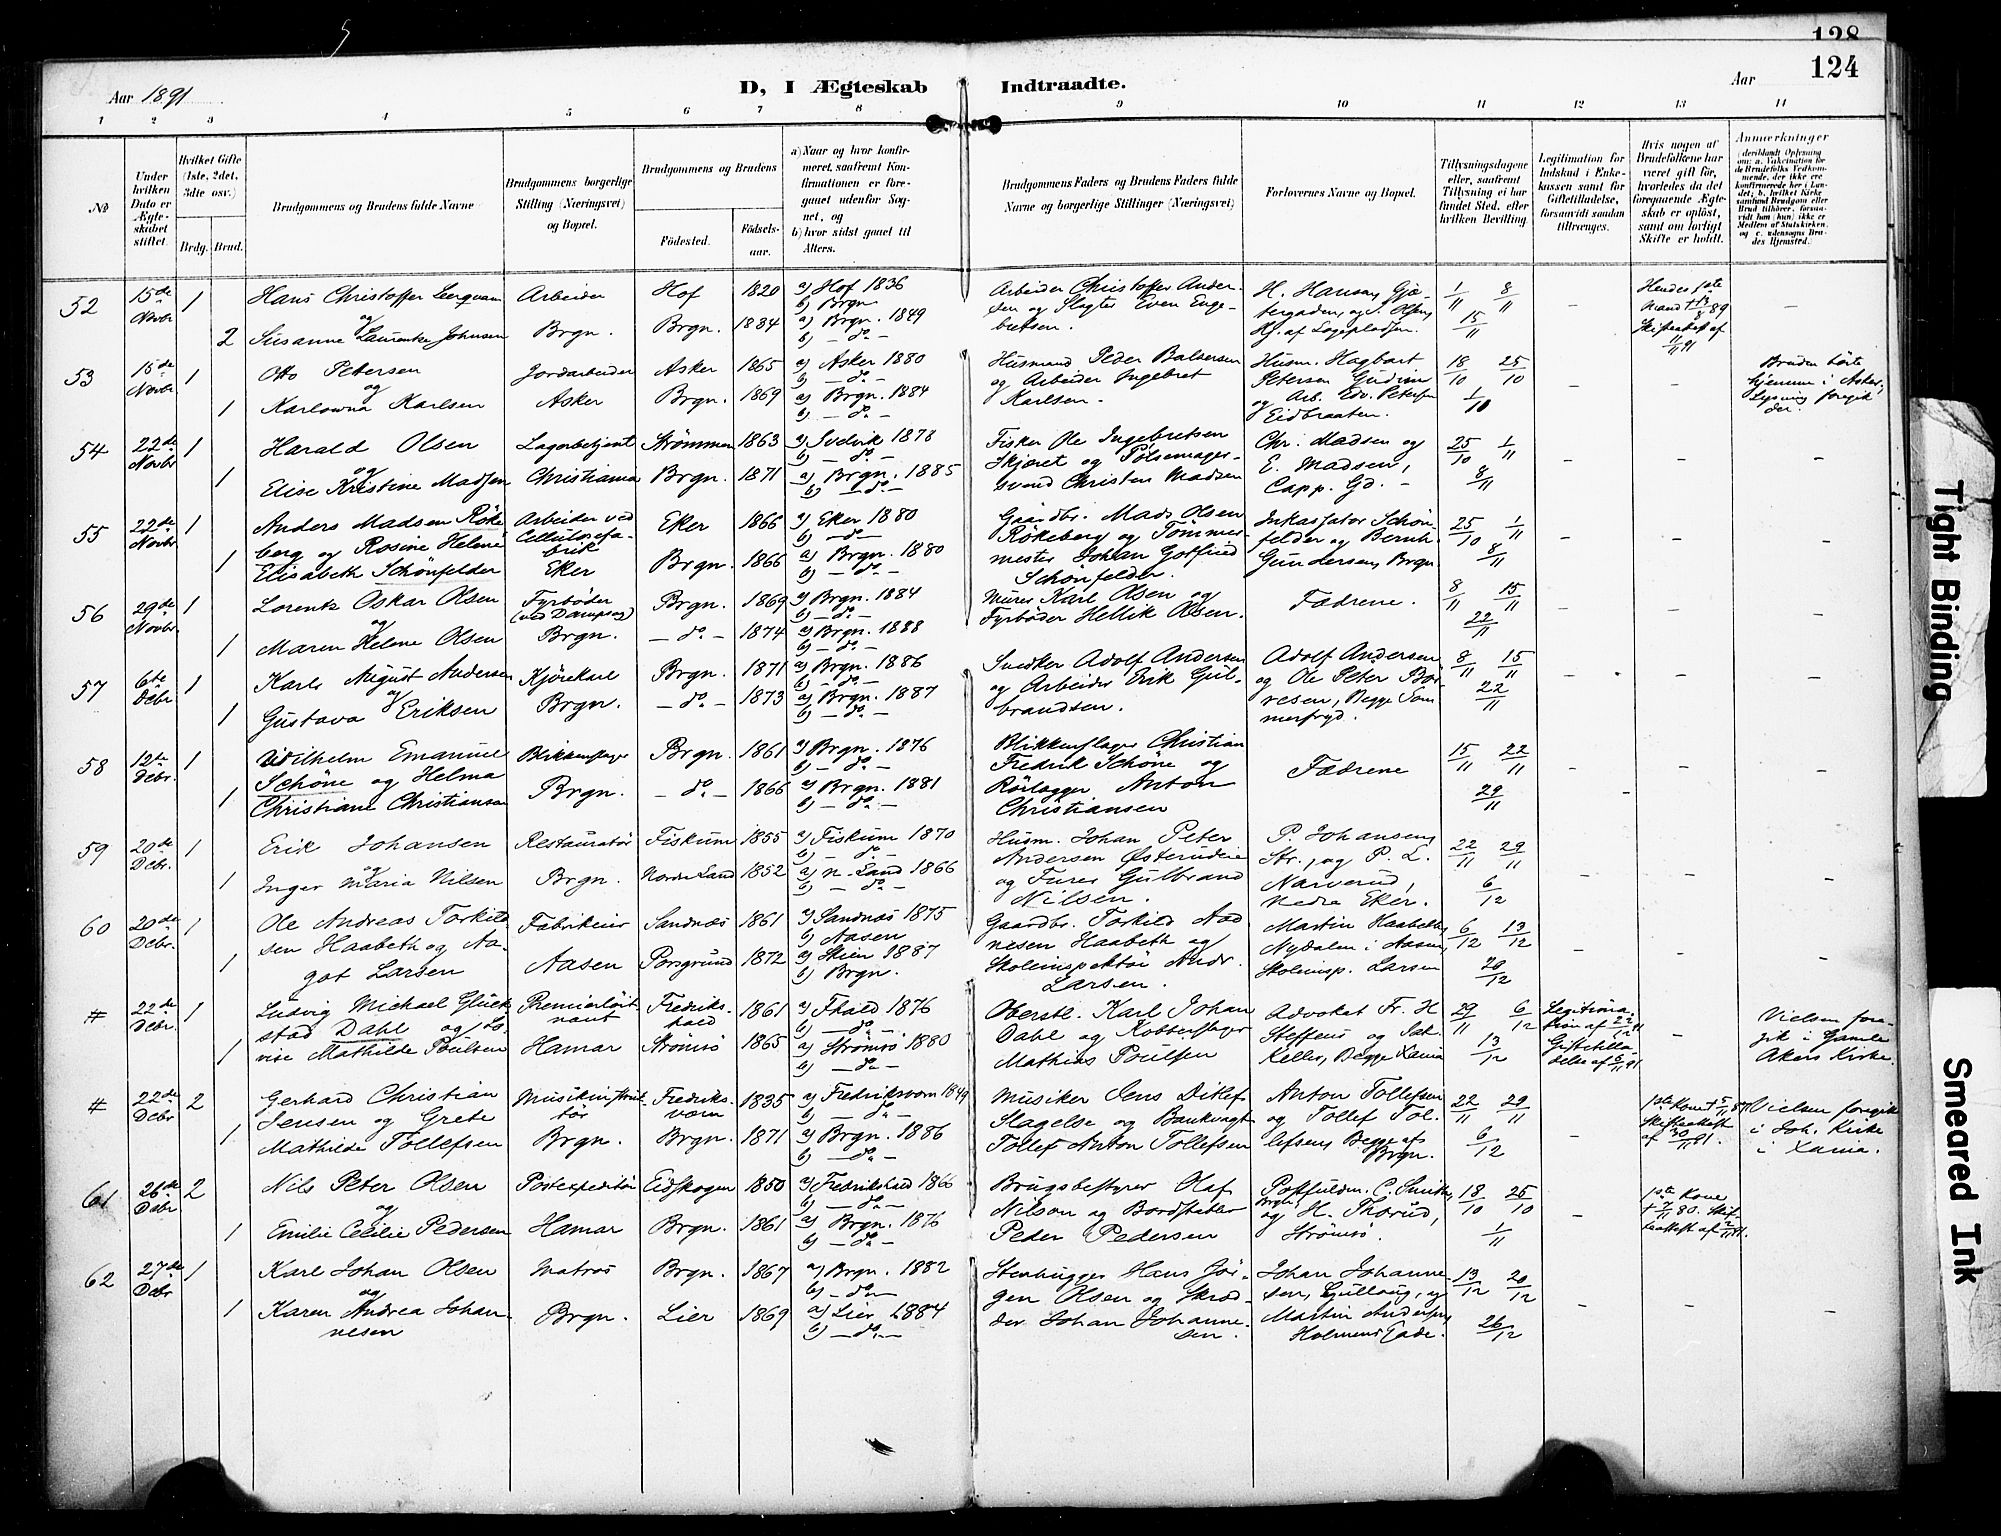 128
124
Aar 1891
D, I Ægteskab Indtraadte.
Aar
1 2 3 4 5 6 7 8 9 10 11 12 13 14
No
Under hvilken Dato er Ægteskabet stiftet.
Hvilket Gifte (1ste, 2det, 3dte osv.)
Brdg. Brud.
Brudgommens og Brudens fulde Navne
Brudgommens borgerlige Stilling (Næringsvei) og Bopæl.
Brudgommens og Brudens
Födested.
Födsels-aar.
a) Naar og hvor konfirmeret, saafremt Konfirmationen er foregaaet udenfor Sognet, og
b) hvor sidst gaaet til Alters.
Brudgommens Faders og Brudens Faders fulde Navne og borgerlige Stillinger (Næringsvei)
Forlovernes Navne og Bopæl.
Tillysningsdagene eller, saafremt Tillysning ei har fundet Sted, efter hvilken Bevilling.
Legitimation for Indskud i Enkekassen samt for Giftetilladelse, forsaavidt saadan tiltrænges.
Hvis nogen af Brudefolkene har været gift før, hvorledes da det foregaaende Ægteskab er opløst, samt om lovligt Skifte er holdt.
Anmærkninger
52 15de Novbr 1 Hans Christoffer Arbeider Hof 1820 a) Hof 1836
b) Brgn
og
2 Susanne Laurentze Johnsen Brgn. Brgn. 1834 a) Brgn. 1849
b) - do -
Arbeider Christoffer Andersen og Slagter Even Engebretsen.
1/11 8/11
15/11
Hendes 1ste Mand
53 15de Novbr 1 Otto Petersen Jordarbeider Asker 1865 a) Asker 1880
b) - do -
og
1 Karlowna Karlsen Asker Brgn. 1869 a) Brgn. 1884
b) - do -
Husmand Peder Balsersen
og Arbeider Ingebret
Karlsen.
Husm. Hagbart
Petersen Gudim
og Arb. Edv. Petersen
Eidbraaten.
18/10 25/10
1/10
Bruden hørte
hjemme i Asker,
Lysning foregik
der.
54 22de Novbr 1 Harald Olsen Lagerbetjent Strømmen 1863 a) Svelvik 1878
b) - do -
og
1 Elise Kristine Madsen Christiania Brgn. 1871 a) Brgn. 1885
b) - do -
Fisker Ole Ingebretsen
Skjæret og Pølsemager-
svend Christen Madsen
Chr. Madsen og
E. Madsen,
Capp. Gd. -
25/10 1/11
8/11
55 22de Novbr 1 Anders Madsen Röke-
berg og Rosine Helene
1 Elisabeth Schönfelder
Arbeider ved
Cellulosefa-
brik
Eker
Eker 1866 a) Eker 1880
b) - do -
Brgn. 1866 a) Brgn. 1880
b) - do -
Gaardbr. Mads Olsen
Rökeberg og Tömmer-
mester Johan Gotfried
Schönfelder.
Inkassator Schön-
felder og Bernh.
Gundersen, Brgn
25/10 1/11
8/11
56 29de Novbr. 1 Lorentz Oskar Olsen
og
1 Maren Helene Olsen
Fyrböder
(ved Dampsag)
Brgn.
Brgn. 1869 a) Brgn. 1884
b) - do -
- do - 1874 a) Brgn. 1888
b) - do -
Murer Karl Olsen og
Fyrböder Hellik Olsen.
Fædrene.
8/11 15/11
22/11
57 6te Debr 1 Karls August Andersen
og
1 Gustava Eriksen
Kjörekarl
Brgn.
Brgn. 1871 a) Brgn. 1886
b) - do -
- do - 1873 a) Brgn. 1887
b) - do -
Snedker Adolf Andersen
og Arbeider Erik Gul-
brandsen.
Adolf Andersen
og Ole Peter Bör-
resen, Begge Som-
merfryd.
8/11 15/11
22/11
58 12te Debr. 1 Vilhelm Emanuel
Schöne og Helma
1 Christiane Christiansen
Blikkenslager
Brgn.
Brgn. 1861 a) Brgn. 1876
b) - do -
- do - 1866 a) Brgn. 1881
b) - do -
Blikkenslager Christian
Fredrik Schöne og
Rörlægger Anton
Christiansen
Fædrene
15/11 22/11
29/11
59 20de Debr. 1 Erik Johansen
og
1 Inger Maria Nilsen
Restauratör
Brgn.
Fiskum 1855 a) Fiskum 1870
b) - do -
Nordre Land 1852 a) N. Land 1866
b) - do -
Husm. Johan Peter
Andersen Østerudeie
og Furer Gulbrand
Nilsen.
P. Johansen,
Str., og P. L.
Narverud,
Nedre Eker.
22/11 29/11
6/12
60 20de Debr. 1 Ole Andreas Torkild-
sen Haabeth og Aa-
1 got Larsen
Fabrikeier
Aasen
Sandnæs 1861 a) Sandnæs 1875
b) Aasen
Porsgrund 1872 a) Skien 1887
b) Brgn.
Gaardbr. Torkild Aad-
nesen Haabeth og
Skoleinspektör Andr.
Larsen.
Martin Haabeth,
Nydalen i Aasen,
Skoleinsp. Larsen
6/12 13/12
20/12
# 22de Debr. 1 Ludvig Michael Glück-
stad Dahl og Lo-
1 vise Mathilde Poulsen
Premierløit-
nant
Hamar
Fredriks-
hald 1861 a) Fhald 1876
b) - do -
Strömsö 1865 a) Strömsö 1880
b) - do -
Oberstl. Karl Johan
Dahl og Kobberslager
Mathias Poulsen
Advokat Fr. H.
Steffens og Jak.
Keller, Begge Xania
29/11 6/12
13/12
Legitima-
tion af 22/12 91
Giftetilla-
delse af
Vielsen fore-
gik i Gamle
Akers Kirke.
# 22de Debr 2 Gerhard Christian
Jensen og Grete
1 Mathilde Tollefsen
Musikinstruk-
tör
Brgn.
Fredriks-
værn 1835 a) Fredriksværn 1849
b) - do -
Brgn. 1871 a) Brgn. 1886
b) - do -
Musiker Jens Ditlef
Slagelse og Bankvagt
Tollef Anton Tollefsen
Anton Tollefsen
og Tollef Tol-
lefsen, Begge af
Brgn.
22/11 29/11
6/12
1ste Kone
Skifteattest
af 30/11 91.
Vielsen foregik
i Joh. Kirke
i Xania.
61 26de Debr 2 Nils Peter Olsen
og
1 Emilie Cecilie Pedersen
Postexpeditör
Hamar
Eidskogen 1850 a) Fredrikshald 1866
b) - do -
Brgn. 1861 a) Brgn. 1876
b) - do -
Brugsbestyrer Olaf
Nilson og Bordstabler
Peder Pedersen
Postfuldm. C. Smith,
Brgn.,
og H. Thorud,
Strömsö.
18/10 25/10
1/11
1ste Kone
62 27de Debr 1 Karl Johan Olsen
og
1 Karen Andrea Johan-
nesen
Matros
Brgn.
Brgn. 1867 a) Brgn. 1882
b) - do -
Lier 1869 a) Lier 1884
b) - do -
Stenhugger Hans Jör-
gen Olsen og Skræd-
der Johan Johanne-
sen.
Johan Johanne-
sen, Gullaug, og
Martin Andersen,
Holmens Gade.
13/12 20/12
26/12
Tight Binding
Smeared Ink